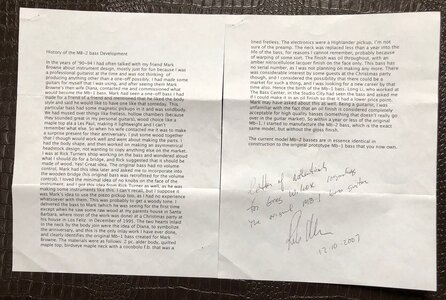 History of the MB-2 bass Development
In the years of '90-94 I had often talked with my friend Mark
Browne about instrument design, mostly just for fun because I was
a professional guitarist at the time and was not thinking of
producing anything other than a one-off possibly; I had made some
guitars for myself that I was using; and after seeing them Mark
Browne's then wife Diana, contacted me and commissioned what
would become the MB-1 bass. Mark had seen a one-off bass I had
made for a friend in SF and had mentioned that he liked the body
style and said he would like to have one like that someday. This
particular bass had some magnetic pickups in it and was solidbody.
We had mused over things like fretless, hollow chambers because
they sounded great in my personal guitar, wood choice like a
maple top also as I was using it lightweight are a few. I can't
remember what else. So when his wife contacted me it was to make
a surprise present for their anniversary. I put some wood together
that I thought would work and went about making the piece. I
had the body shape, and then worked on making an asymmetrical
headstock design, not wanting to copy anything else on the market.
I was at Rick Turners shop working on the bass and wondered aloud
what I should do for a bridge, and Rick suggested that it should be
made of wood. Yes! Great idea. The original bass had no volume
control, Mark had this idea later and asked me to incorporate into
the wooden bridge (his original bass was retrofitted for the volume
control). I loved the minimal idea of no knobs on the face of the
instrument, and I got this idea from Rick Turner as well, as he was
making some instruments like this. I can't recall, but I suppose it
was Mark's idea to use the piezo pickup too, as I had no experience
whatsoever with them. This was probably to get a woody tone. I
delivered the bass to Mark (which he was seeing for the first time
except when he saw some raw wood at my parents house in Santa
Barbara, where most of the work was done) at a Christmas party at
his house in Los Feliz, in December of 1993. The two hearts inlaid
to the neck by the body joint were the idea of Diana, to symbolize
the anniversary, and this is the only inlay work I have ever done,
and clearly identifies the original MB-1 bass created for Mark
Browne. The materials were as follows: 2 pc. alder body, quilted
maple top, birdseye maple neck with a cocobolo f.b. that was a
lined fretless. The electronics were a Highlander pickup, I'm not
sure of the preamp. The neck was replaced less than a year into the
life of the bass, for reasons I cannot remember, probably because
of warping of some sort. The finish was oil throughout, with an
amber nitrocellulose lacquer finish on the face only. This bass had
no serial number, as I was not planning on making any more. There
was considerable interest by some guests at the Christmas party
though, and I considered the possibility that there could be a
market for such a thing, and I was looking for a new career by that
time also. Hence the birth of the MB-1 bass. Long Li, who worked at
The Bass Center, in the Studio City had seen the bass and asked me
if I could make it in an oil finish so that it had a lower price point.
Mark may have asked about this as well. Being a guitarist, I was
unfamiliar with the fact that an oil finish is considered completely
acceptable for high quality basses (something that doesn't really go
over in the guitar market). So within a year or less of the original
MB-1, I started to manufacture the MB-2 bass, which is the exact
same model, but without the gloss finish.
The current model MB-2 basses are in essence identical in
construction to the original prototype MB-1 bass that you now own.
Letter of authenticity
for
the original MB-1
12-10-2007